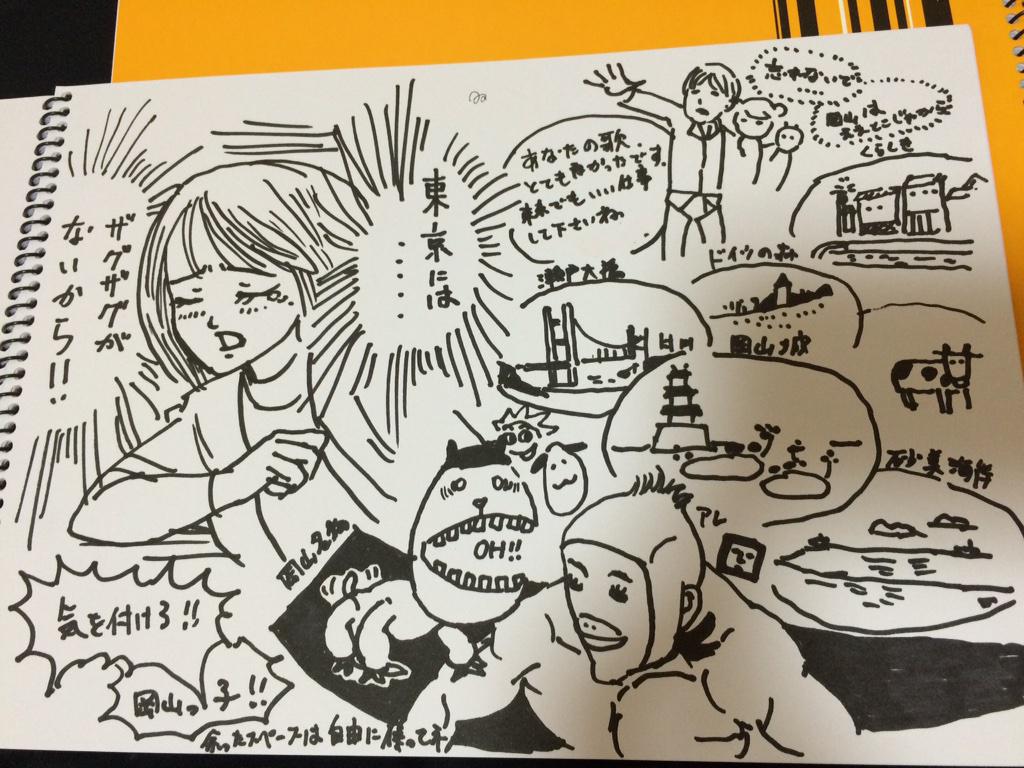 東京には
‥‥‥
ザグザグが
ないから!!
気を付けろ!!
岡山っ子!!
あなたの歌
とても良かったです。
東京でもいい仕事
して下さいね
忘れないで
岡山は
ええとこじゃけぇ
くらしき
ドイツの森
瀬戸大橋
岡山城
砂美海岸
アレ
OH!!
岡山名物
余ったスペースは自由に使って